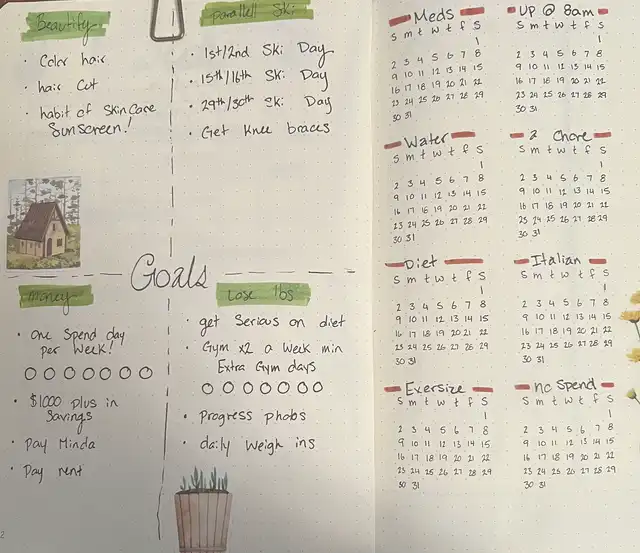 Beautify
· Color hair
· hair Cut
· habit of Skin Care
Sunscreen!
parallell Ski
· 1st/2nd Ski Day
· 15th/16th Ski Day
· 29th/30th Ski Day
· Get Knee braces
Goals
money
· one Spend day
per Week!
· $1000 plus in
Savings
· Pay Minda
· Pay rent
Lose lbs
· get Serious on diet
· Gym x2 a Week min
Extra Gym days
· Progress phobs
· daily Weigh ins
2
Meds
S m t w t f S
1
2 3 4 5 6 7 8
9 10 11 12 13 14 15
16 17 18 19 20 21 22
23 24 25 26 27 28 29
30 31
UP @ 8am
S m t w t f S
1
2 3 4 5 6 7 8
9 10 11 12 13 14 15
16 17 18 19 20 21 22
23 24 25 26 27 28 29
30 31
Water
S m t w t f S
1
2 3 4 5 6 7 8
9 10 11 12 13 14 15
16 17 18 19 20 21 22
23 24 25 26 27 28 29
30 31
2 Chore
S m t w t f S
1
2 3 4 5 6 7 8
9 10 11 12 13 14 15
16 17 18 19 20 21 22
23 24 25 26 27 28 29
30 31
Diet
S m t w t f S
1
2 3 4 5 6 7 8
9 10 11 12 13 14 15
16 17 18 19 20 21 22
23 24 25 26 27 28 29
30 31
Italian
S m t w t f S
1
2 3 4 5 6 7 8
9 10 11 12 13 14 15
16 17 18 19 20 21 22
23 24 25 26 27 28 29
30 31
Exersize
S m t w t f S
1
2 3 4 5 6 7 8
9 10 11 12 13 14 15
16 17 18 19 20 21 22
23 24 25 26 27 28 29
30 31
no Spend
S m t w t f S
1
2 3 4 5 6 7 8
9 10 11 12 13 14 15
16 17 18 19 20 21 22
23 24 25 26 27 28 29
30 31